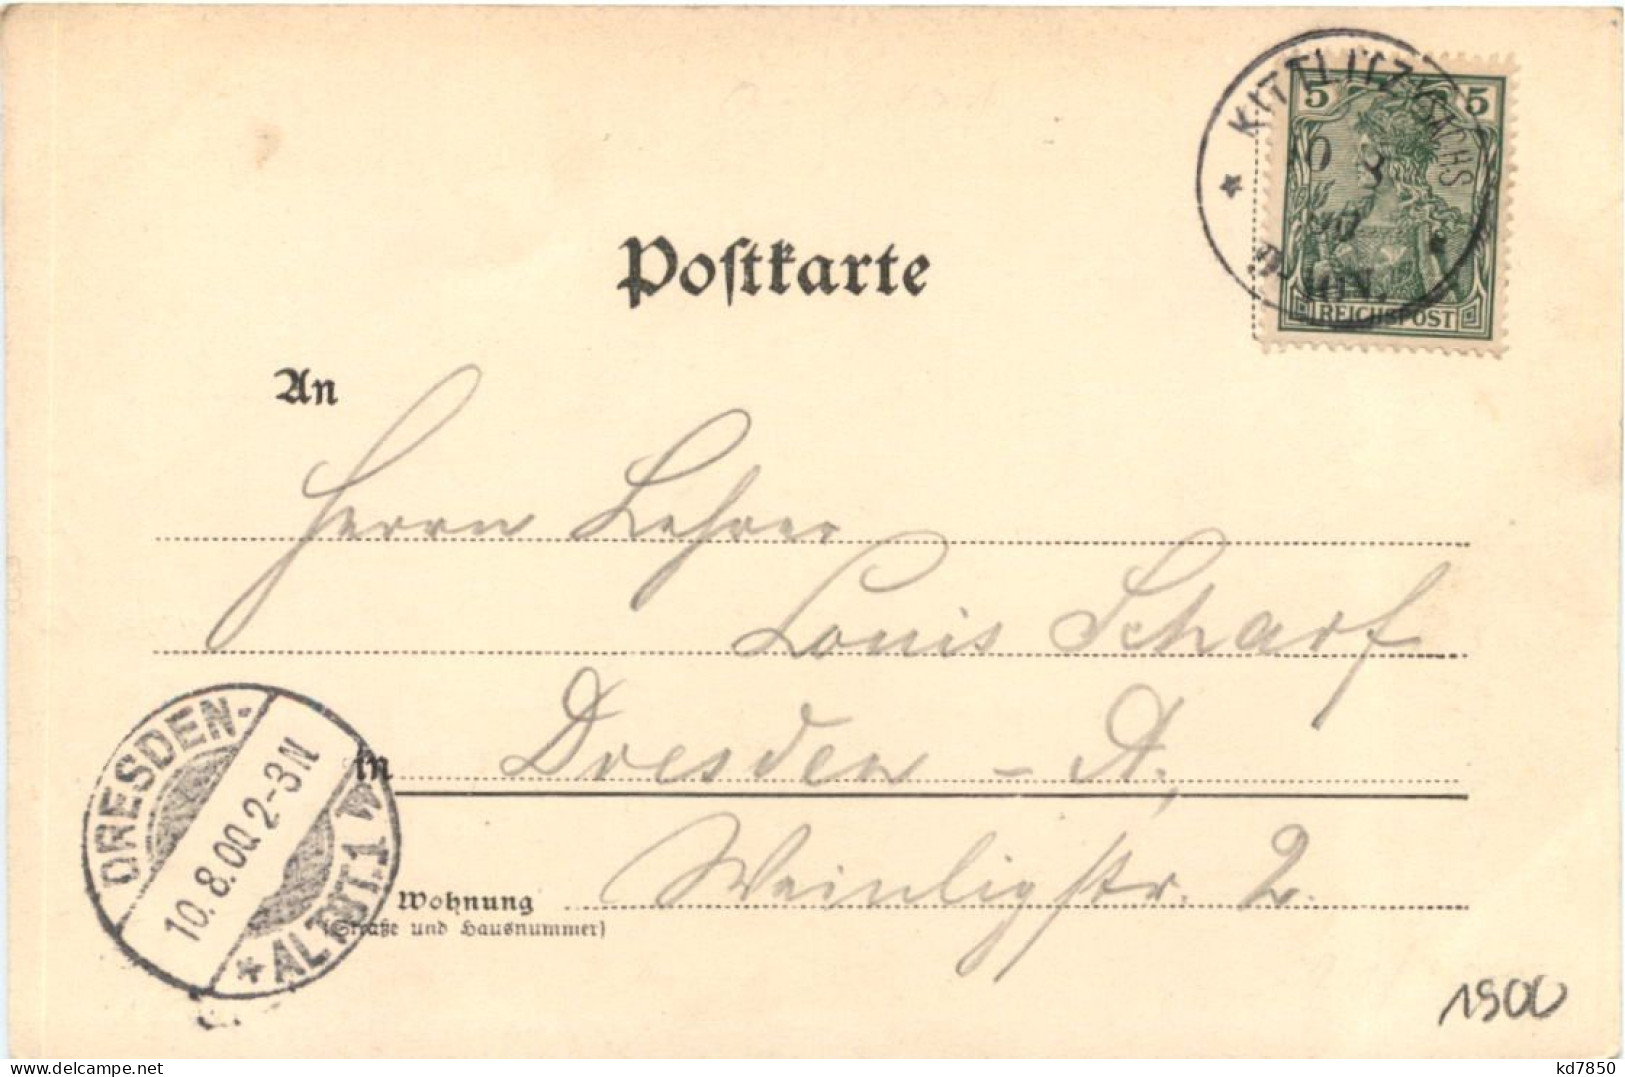 KITTLITZ (SACHS
5 5
REICHSPOST
Postkarte
An
Herrn Lehrer
Louis Scharf
in Dresden-A.
Wohnung Weinligstr. 2.
(Straße und Hausnummer)
DRESDEN-
10.8.00. 2-3N
* ALTST. 1 w
1900
www.delcampe.net
kd7850